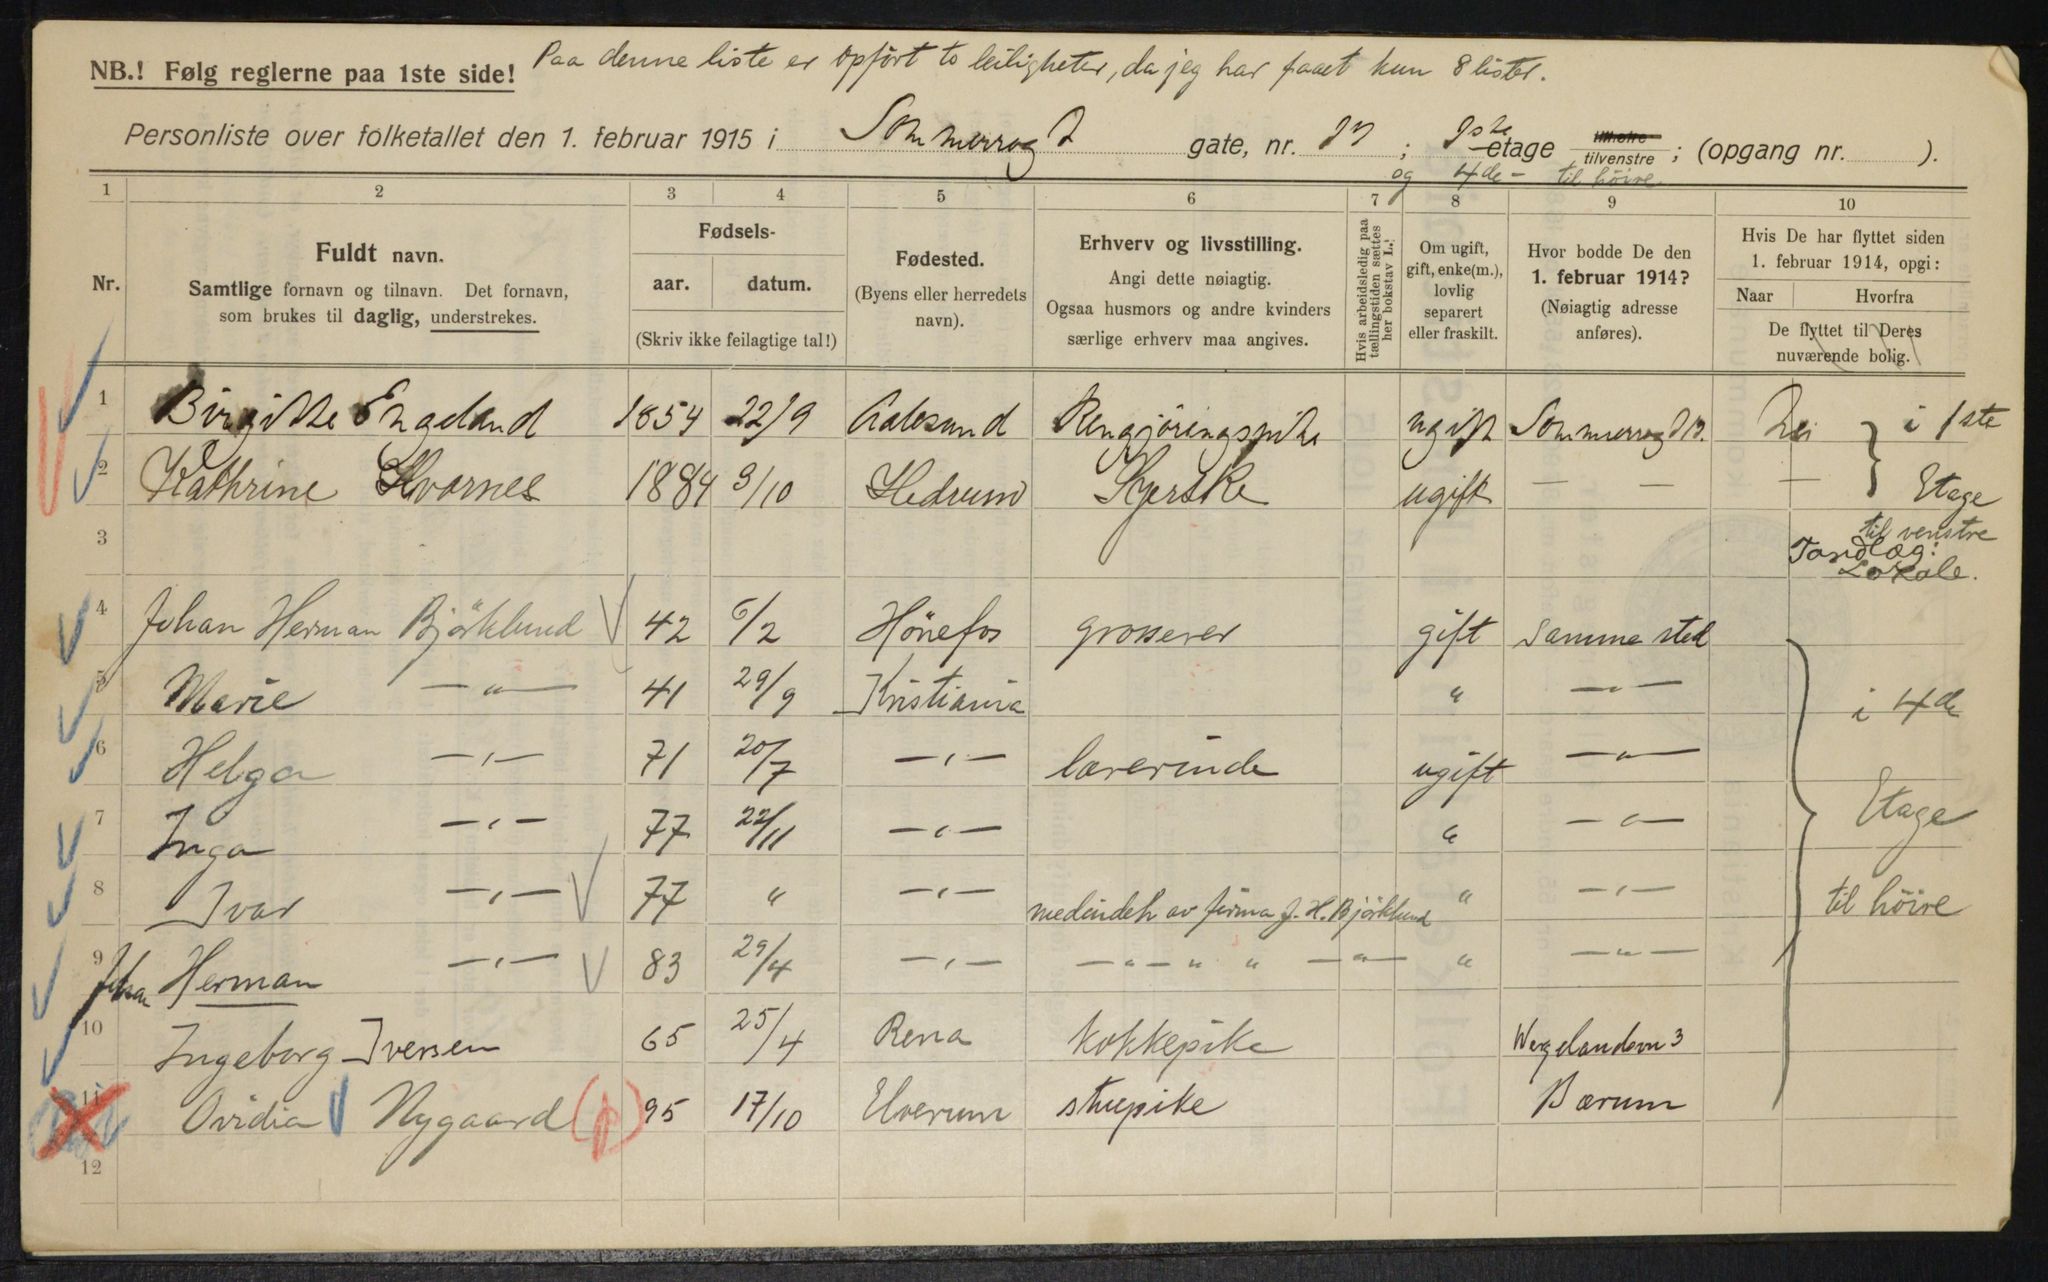 Paa denne liste er opført to leiligheter, da jeg har faaet kun 8 lister.
NB.! Følg reglerne paa 1ste side!
Personliste over folketallet den 1. februar 1915 i Sommerrog gate, nr. ; 1ste etage tilvenstre ; (opgang nr. ).
og 4de – til höire
1 2 3 4 5 6 7 8 9 10
Nr.
Fuldt navn.
Samtlige fornavn og tilnavn. Det fornavn,
som brukes til daglig, understrekes.
Fødsels-
aar. datum.
(Skriv ikke feilagtige tal!)
Fødested.
(Byens eller herredets
navn).
Erhverv og livsstilling.
Angi dette nøiagtig.
Ogsaa husmors og andre kvinders
særlige erhverv maa angives.
Hvis arbeidsledig paa
tællingstiden sættes
her bokstav L.!
Om ugift,
gift, enke(m.),
lovlig
separert
eller fraskilt.
Hvor bodde De den
1. februar 1914?
(Nøiagtig adresse
anføres).
Hvis De har flyttet siden
1. februar 1914, opgi:
Naar Hvorfra
De flyttet til Deres
nuværende bolig.
1 Birgitte Engelund 1854 22/9 Aalesund Rengjøringspike ugift Sommerrog i 1ste
2 Kathrine Kvarnes 1884 3/10 Hedrum ugift — — — Etage
3 til venstre
Tandlæg:
Lokale.
4 Johan Herman Björklund 42 6/2 Hönefos grosserer gift Samme sted
5 Marie —„— 41 29/9 Kristiania „ —„— i 4de
6 Helga —„— 71 20/7 —„— lærerinde ugift —„—
7 Inga —„— 77 22/11 —„— „ —„— Etage
8 Ivar —„— 77 „ —„— medindeh av firma J. H. Björklund „ —„— til höire
9 Johan Herman —„— 83 29/4 —„— —„—„ „ —„— „ —„—
10 Ingeborg Iversen 65 25/4 Rena kokkepike Wergelandsvn 3
11 Ovidia Nygaard 95 17/10 Elverum stuepike Bærum
12